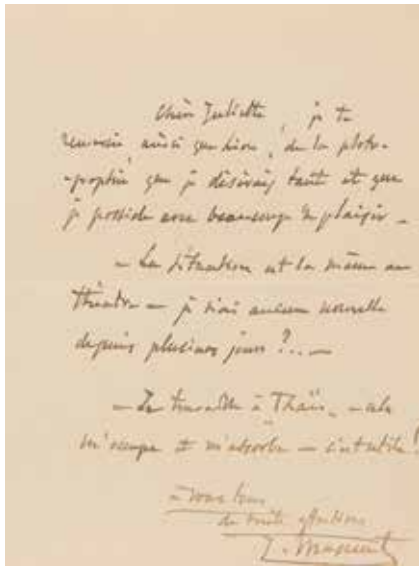 Chère Juliette, je te
remercie, ainsi que Léon, de la photo-
-graphie que je désirais tant et que
je possède avec beaucoup de plaisir –
– La situation est la même au
théâtre – je n'ai aucune nouvelle
depuis plusieurs jours ?.. –
– Je travaille à "Thaïs" – cela
m'occupe et m'absorbe – c'est utile !
à vous tous
de toute affection
J. Massenet